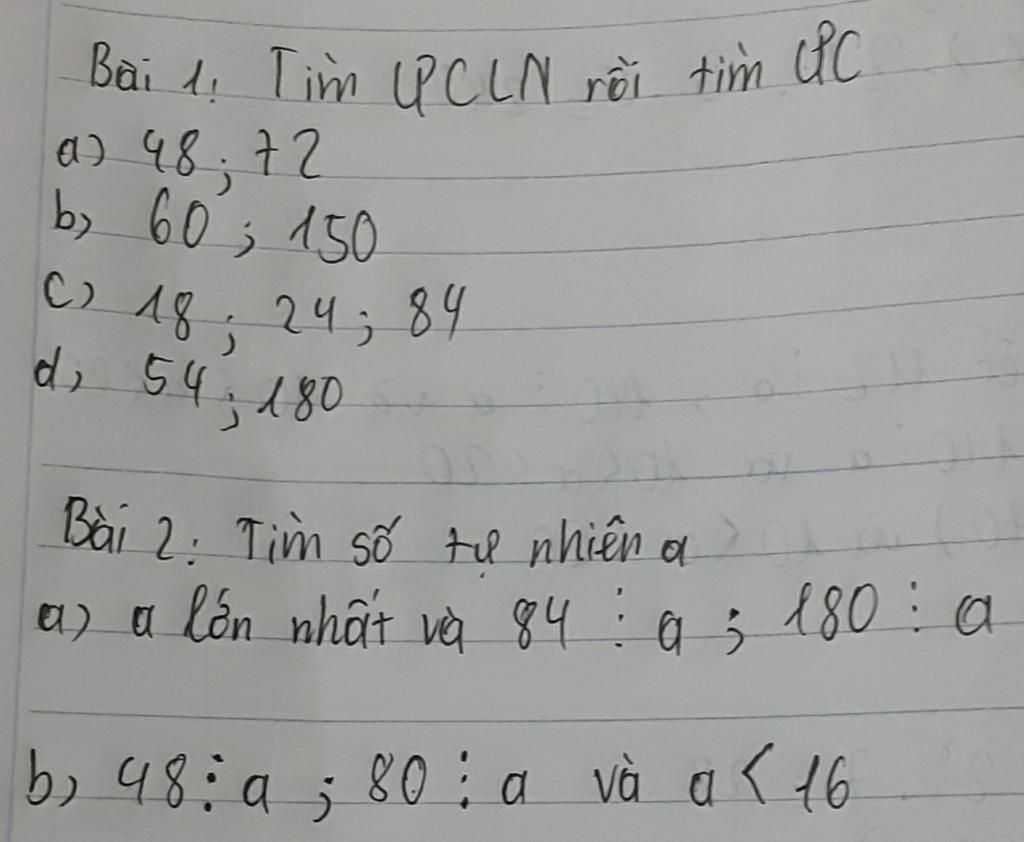 Bài 1: Tìm ƯCLN rồi tìm ƯC
a) 48; 72
b) 60; 150
c) 18; 24; 84
d) 54; 180
Bài 2: Tìm số tự nhiên a
a) a lớn nhất và 84 ⋮ a; 180 ⋮ a
b) 48 ⋮ a; 80 ⋮ a và a < 16